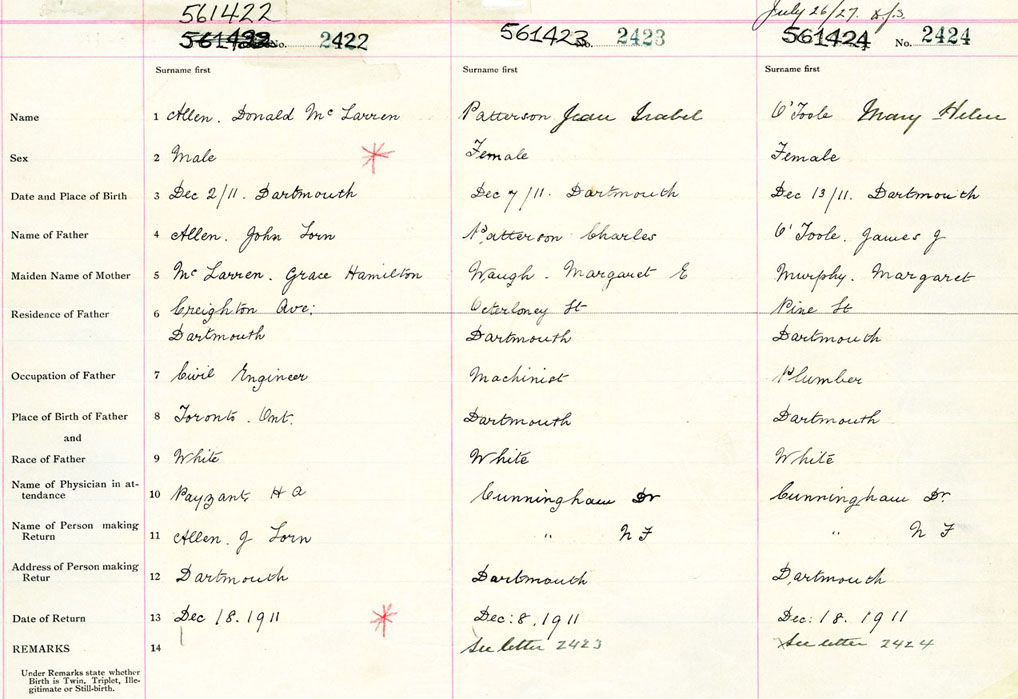 561422
July 26/27.
561422 No. 2422
561423 No. 2423
561424 No. 2424
Surname first
Surname first
Surname first
Name 1 Allen. Donald Mc Larren
Patterson Jean Isabel
O'Toole Mary Helen
Sex 2 Male
Female
Female
Date and Place of Birth 3 Dec 2/11. Dartmouth
Dec 7/11. Dartmouth
Dec 13/11. Dartmouth
Name of Father 4 Allen. John Lorn
Patterson Charles
O'Toole. James J
Maiden Name of Mother 5 Mc Larren. Grace Hamilton
Waugh. Margaret E
Murphy. Margaret
Residence of Father 6 Creighton Ave;
Dartmouth
Octerloney St
Dartmouth
Pine St
Dartmouth
Occupation of Father 7 Civil Engineer
Machinist
Plumber
Place of Birth of Father 8 Toronto. Ont.
Dartmouth
Dartmouth
and
Race of Father 9 White
White
White
Name of Physician in at-
tendance 10 Payzant H A
Cunningham Dr
Cunningham Dr.
Name of Person making
Return 11 Allen. J Lorn
" N F
" N F
Address of Person making
Retur 12 Dartmouth
Dartmouth
Dartmouth
Date of Return 13 Dec 18. 1911
Dec: 8. 1911
Dec: 18. 1911
REMARKS 14
See letter 2423
See letter 2424
Under Remarks state whether
Birth is Twin, Triplet, Ille-
gitimate or Still-birth.